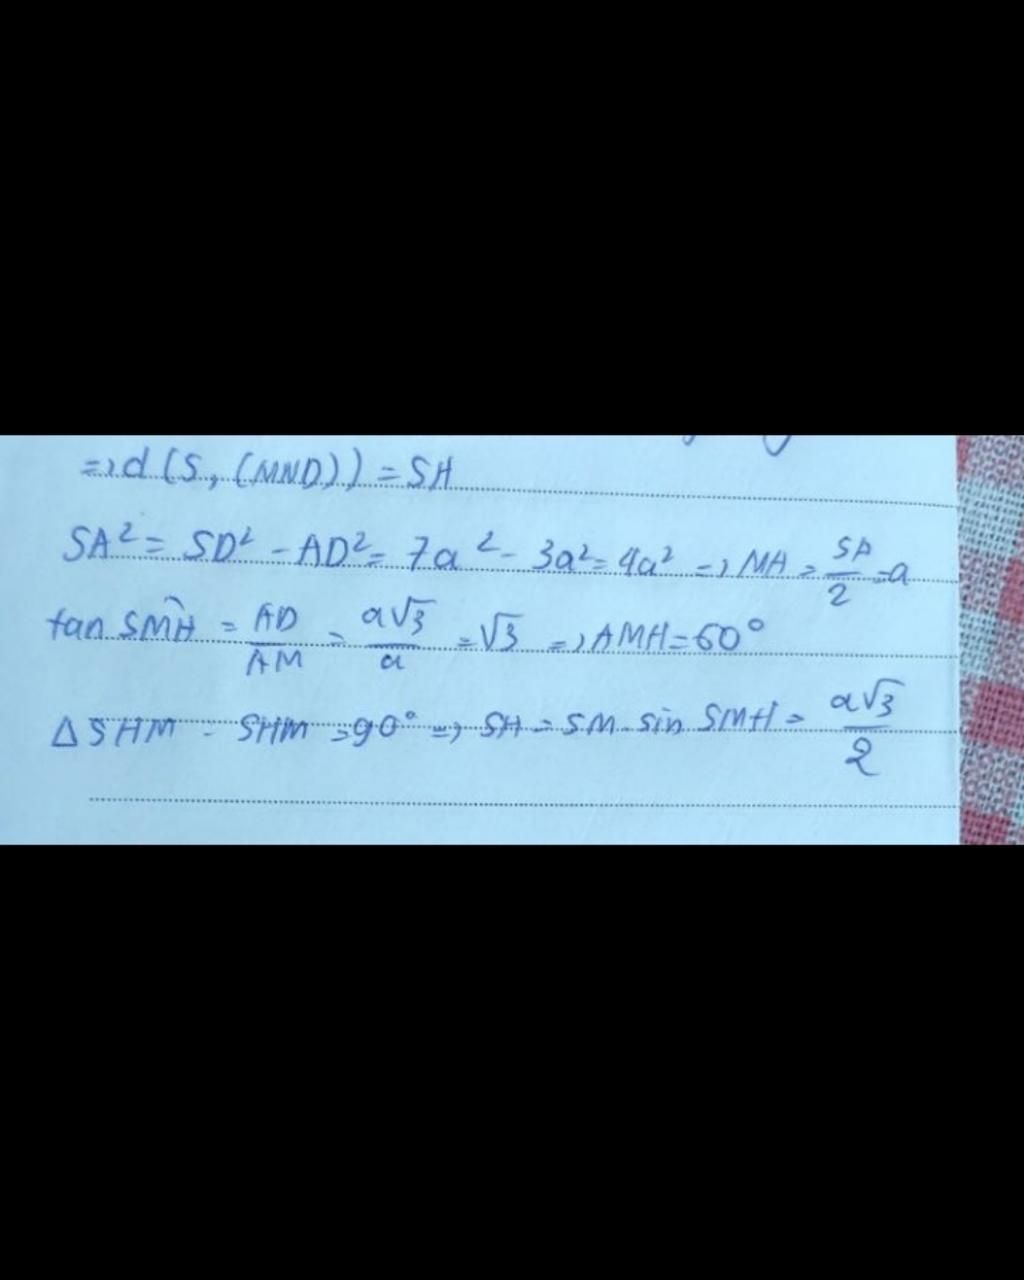 => d (S, (MND)) = SH
SA² = SD² - AD² = 7a² - 3a² = 4a² => MA = SA/2 = a
tan SMH = AD/AM = a√3/a = √3 => AMH = 60°
Δ SHM : SHM = 90° => SH = SM . sin SMH = a√3/2